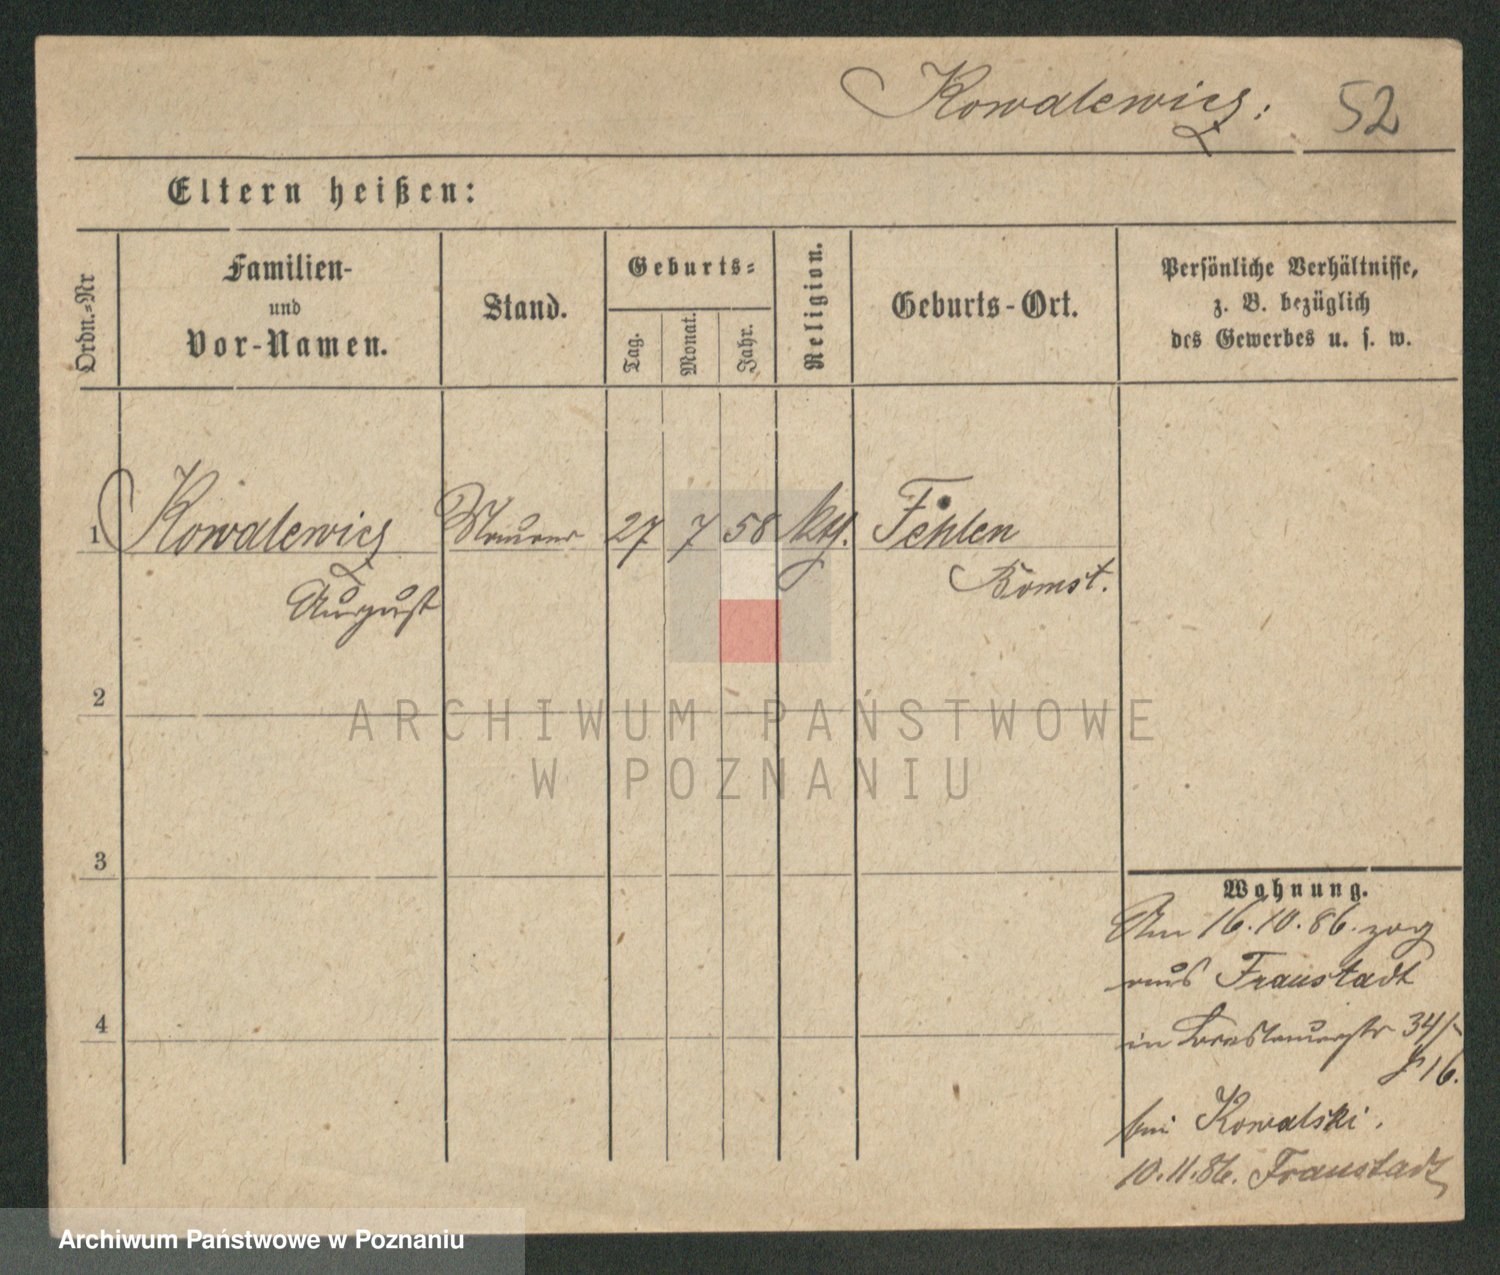 Kowalewicz: 52
Eltern heißen:
Ordn.=Nr
Familien-
und
Vor-Namen.
Stand.
Geburts=
Tag.
Monat.
Jahr.
Religion.
Geburts-Ort.
Persönliche Verhältnisse,
z. B. bezüglich
des Gewerbes u. s. w.
1 Kowalewicz Maurer 27 7 58 kth. Fehlen
August Bomst.
2
ARCHIWUM PAŃSTWOWE
W POZNANIU
3
Wohnung.
Am 16.10.86. zog
aus Fraustadt
4
in Breslauerstr 34/
16.
bei Kowalski.
10.11.86. Fraustadt
Archiwum Państwowe w Poznaniu